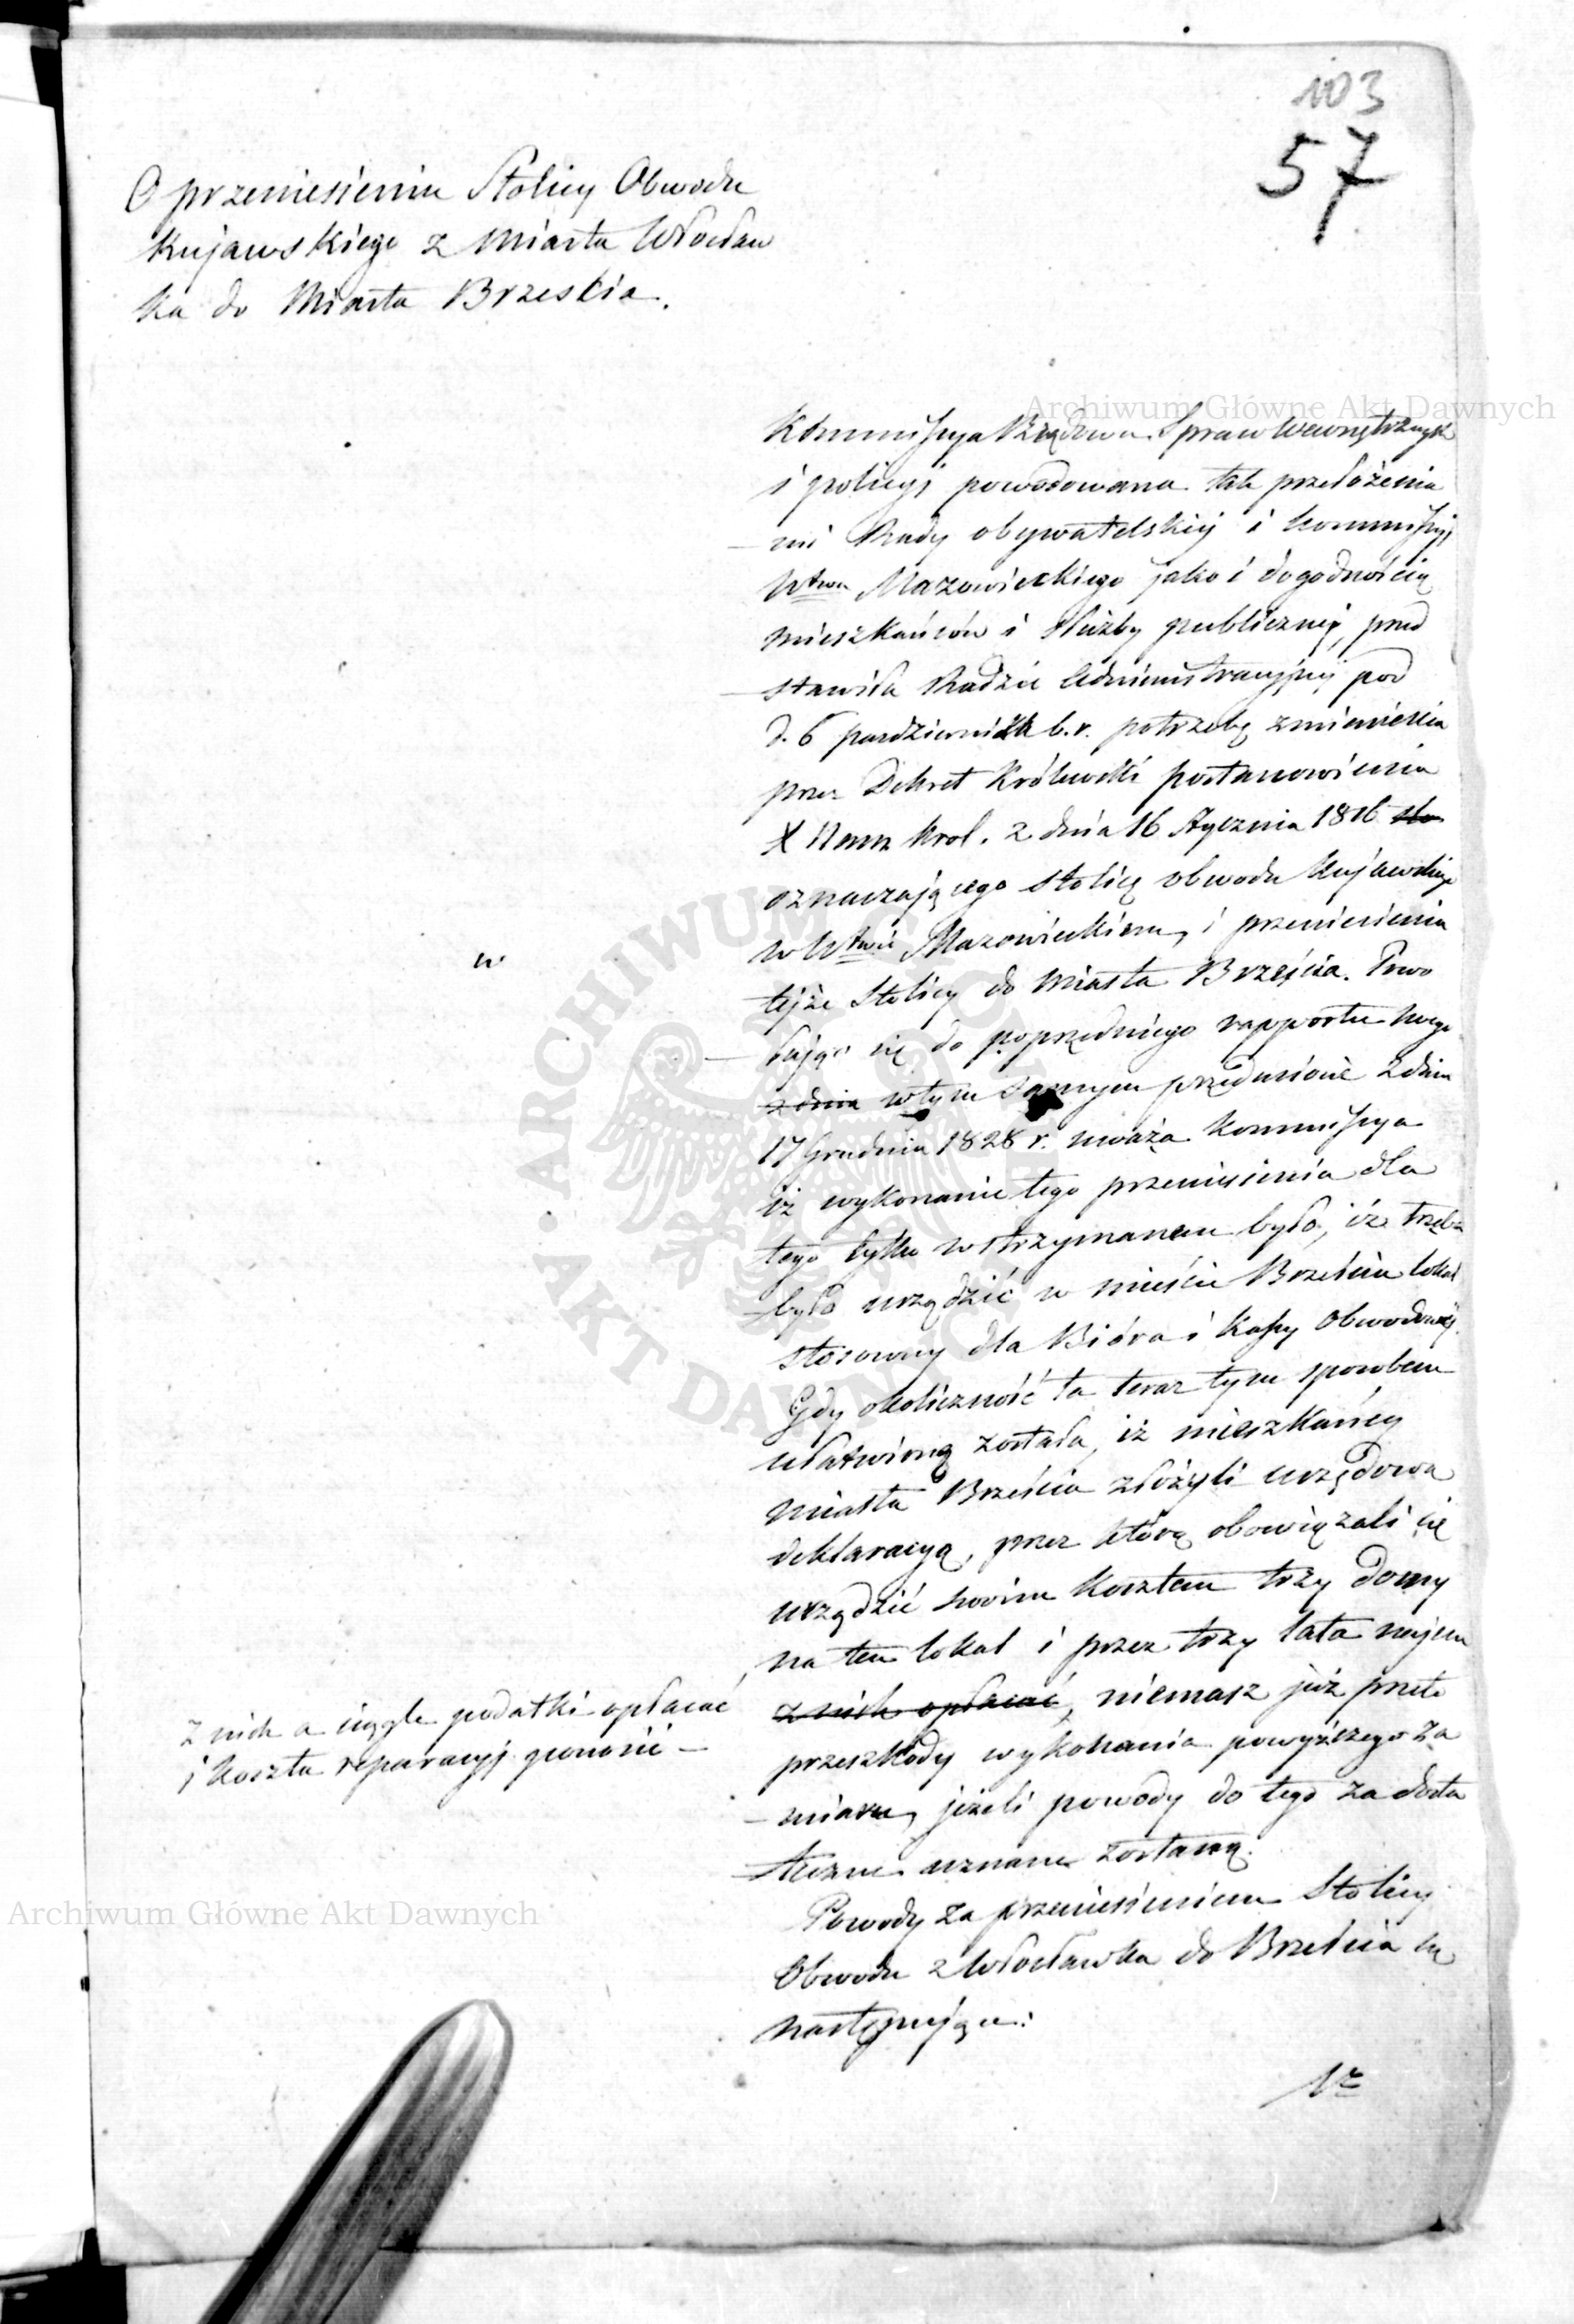 103
57
O przeniesieniu Stolicy Obwodu
Kujawskiego z Miasta Włocław
ka do Miasta Brześcia.
Archiwum Główne Akt Dawnych
Kommissya Rządowa Spraw Wewnętrznych
i policyi powodowana tak przełożenia
mi Rady obywatelskiej i kommissyi
Wtwa Mazowieckiego jako i dogodnością
mieszkańców i służby publicznej, przed
stawiła Radzie Administracyjnej pod
d. 6 pazdziernika b.r. potrzebę zmienienia
przez Dekret Królewski postanowienia
X Nam. Król. z dnia 16 Stycznia 1816
oznaczającego stolicę obwodu Kujawskiego
w Wtwie Mazowieckiem, i przeniesienia
w
tejże Stolicy do Miasta Brześcia. Powo
łując się do poprzedniego rapportu swego
z dnia w tym samym przedmiocie z dnia
17 Grudnia 1828 r. uważa Kommissya
iż wykonanie tego przeniesienia dla
tego tylko wstrzymanem było, iż trzeba
było urządzić w mieście Brześciu lokal
stosowny dla Bióra i Kassy Obwodowej.
Gdy okoliczność ta teraz tym sposobem
ułatwioną została, iż mieszkańcy
miasta Brześcia złożyli urzędowa
deklaracyą, przez którą obowiązali się
urządzić swoim kosztem trzy domy
na ten lokal i przez trzy lata najem
z nich opłacać, niemasz już przeto
z nich a ciągle podatki opłacać
i koszta reparacyj ponosić —
przeszkody wykonania powyższego za
miaru, jeżeli powody do tego za dosta
teczne uznane zostaną.
Powody za przeniesieniem Stolicy
Obwodu z Włocławka do Brześcia są
następujące:
1e
Archiwum Główne Akt Dawnych
ARCHIWUM GŁÓWNE AKT DAWNYCH